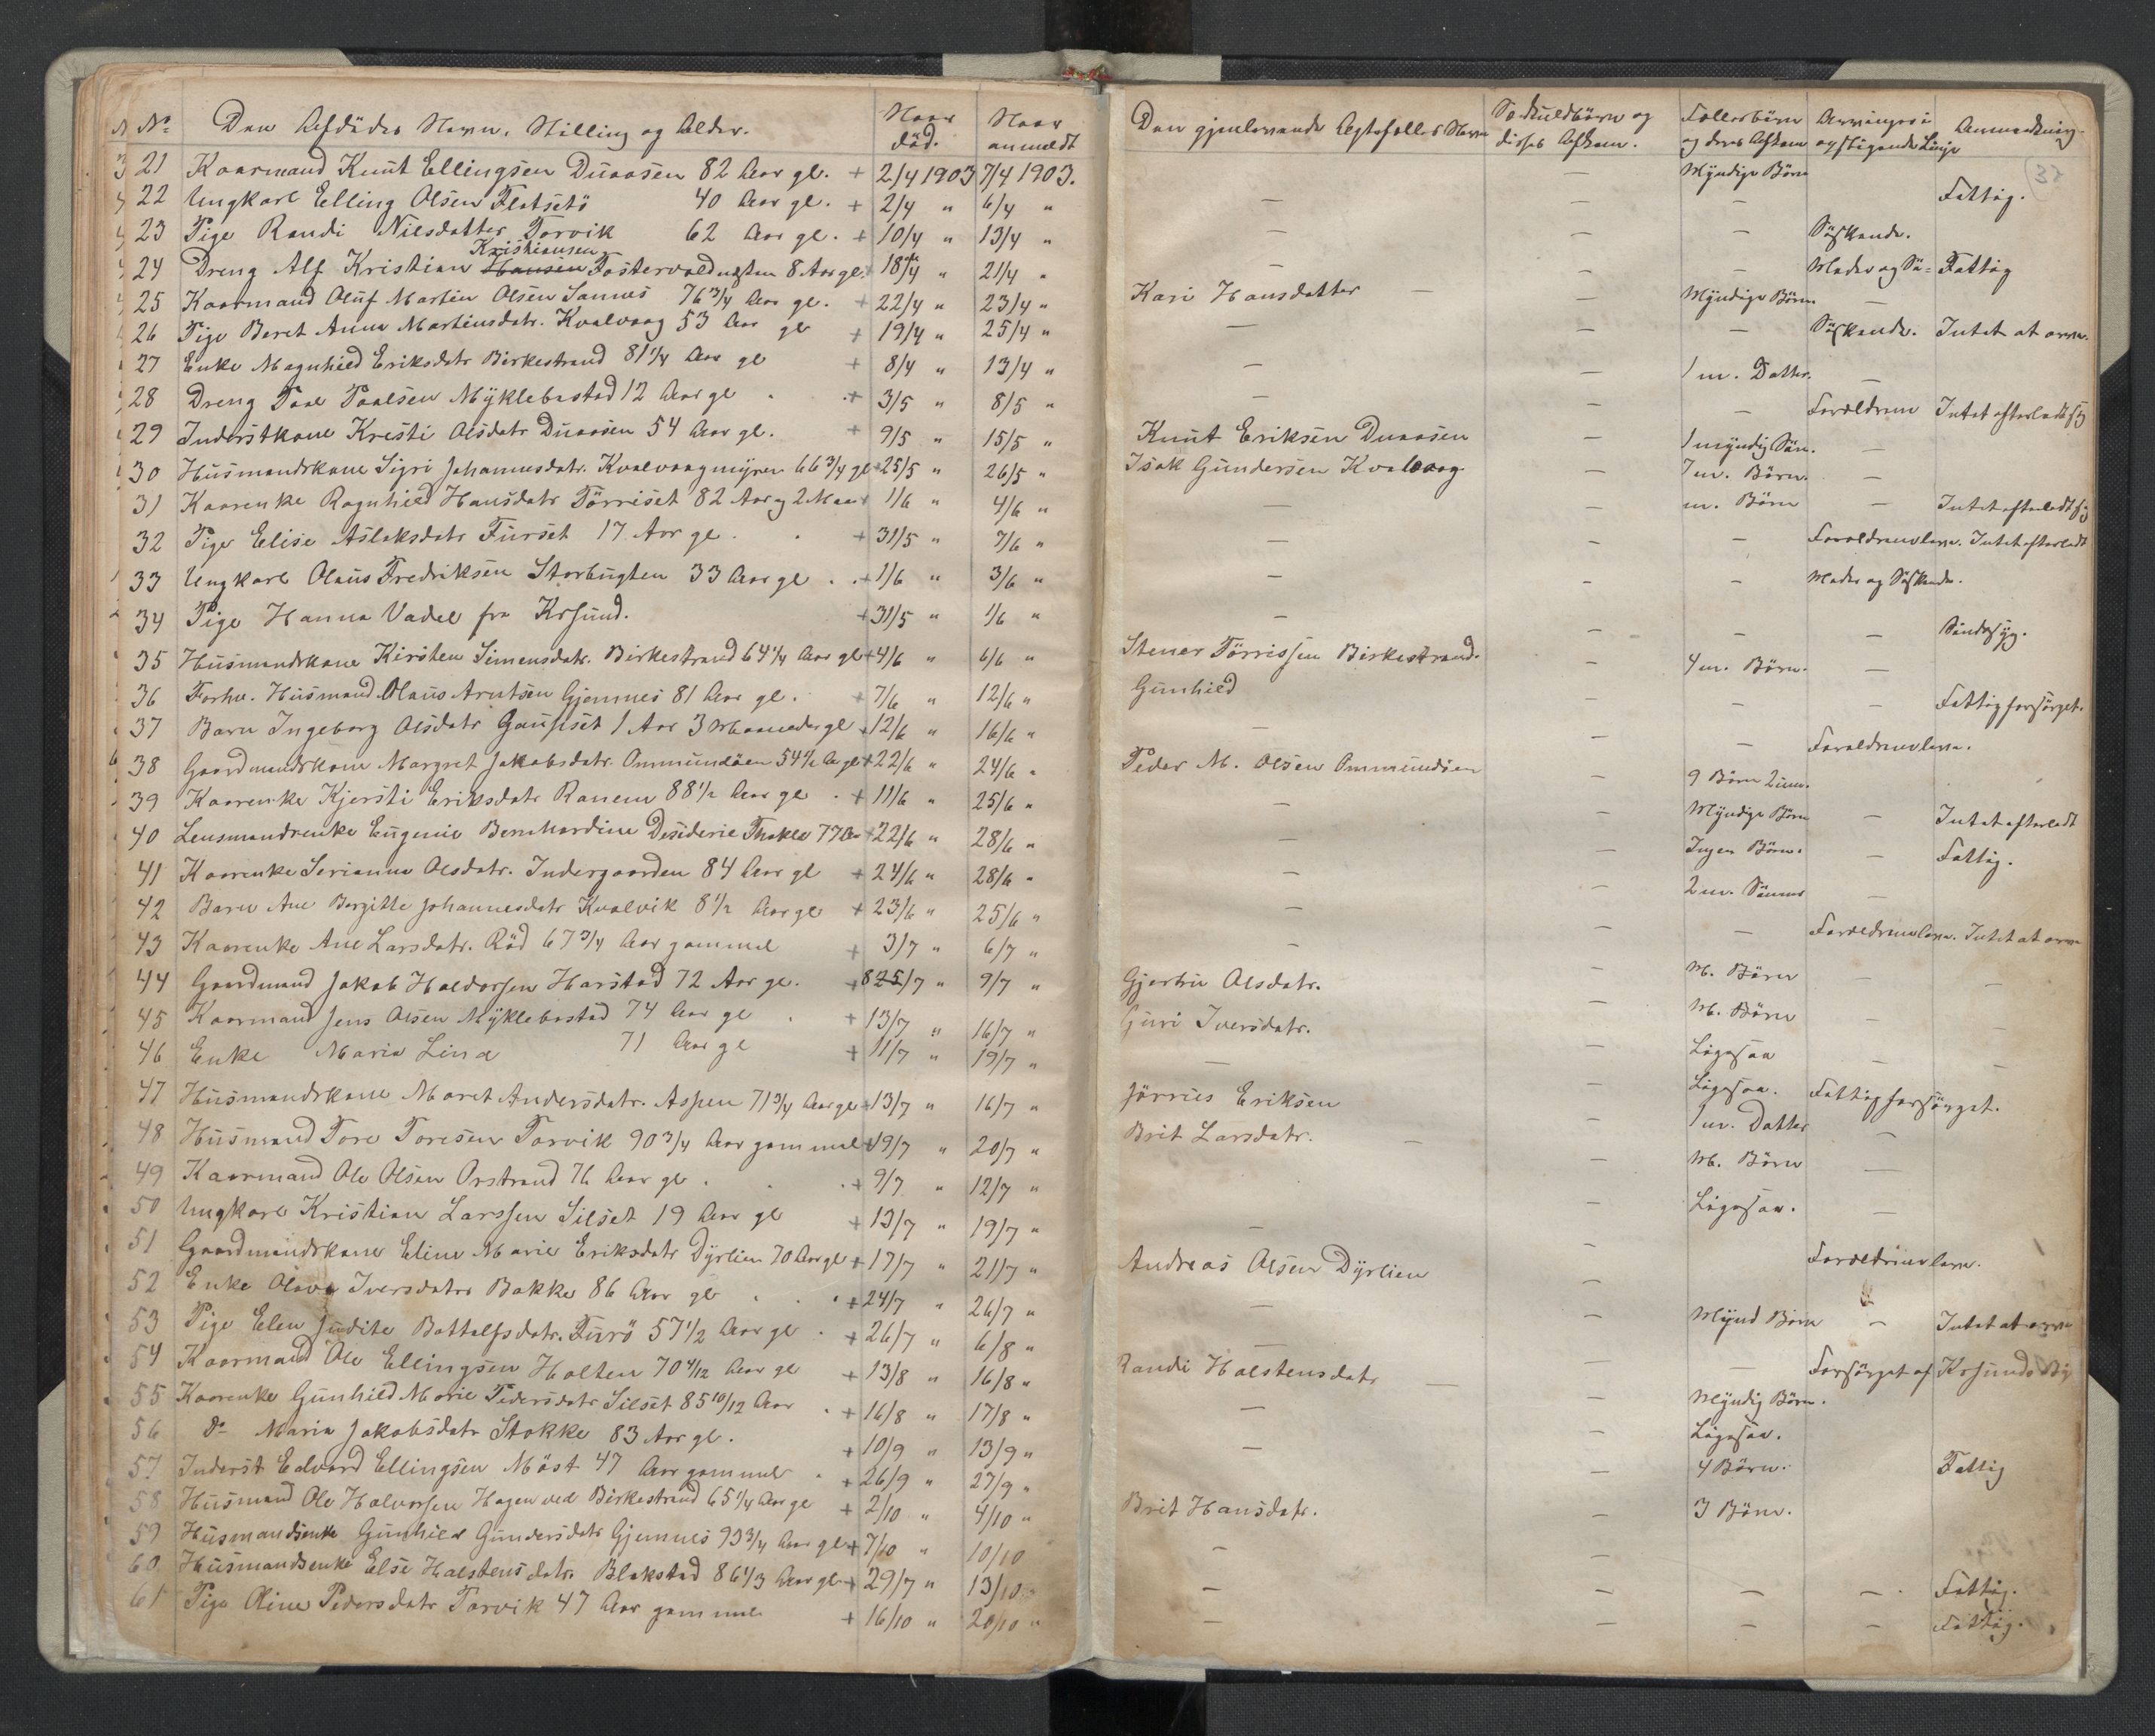 No Den Afdødes Navn, Stilling og Alder. Naar død. Naar anmeldt Den gjenlevende Ægtefælles Navn Særkuldbörn og disses Afkom. Fællesbörn og deres Afkom Arvinger i opstigende Linje Anmerkning.
21 Kaarmand Knut Ellingsen Duaasen 82 Aar gl. + 2/4 1903 7/4 1903. — Myndige Börn
22 Ungkarl Elling Olsen Flatsetö 40 Aar gl. + 2/4 " 6/4 " — — — Fattig.
23 Pige Randi Nilsdatter Torvik 62 Aar gl. + 10/4 " 13/4 " — — — Söskende.
Kristiansen
24 Dreng Alf Kristian Hansen Fostervold 8 Aar gl. + 18/4 " 21/4 " — — Moder og Sö= Fattig
25 Kaarmand Oluf Martin Olsen Sannes 76 3/4 Aar gl. + 22/4 " 23/4 " Kari Hansdatter — — Myndige Börn —
26 Pige Beret Anna Martinsdatr. Kvalvaag 53 Aar gl + 19/4 " 25/4 " — — — Söskende. Intet at arve.
27 Enke Magnhild Eriksdatr Birkestrand 81 1/4 Aar gl + 8/4 " 13/4 " — — 1 m. Datter. —
28 Dreng Paal Paalsen Myklebostad 12 Aar gl + 3/5 " 8/5 " — — — Forældrene Intet efterladt sig
29 Inderstkone Kristi Olsdatr Duaasen 54 Aar gl. + 9/5 " 15/5 " Knut Eriksen Duaasen — 1 myndig Sön. —
30 Husmandskone Sigri Johannesdatr. Kvalvaagmyren 66 3/4 gl + 25/5 " 26/5 " Isak Gundersen Kvalvaag — 7 m. Börn. —
31 Kaarenke Ragnhild Hansdatr Törriset 82 Aar og 2 Maa + 1/6 " 4/6 " — — m. Börn — Intet efterladt sig
32 Pige Elise Aslaksdatr Furset 17 Aar gl. + 31/5 " 7/6 " — — — Forældrene leve. Intet efterladt
33 Ungkarl Olaus Fredriksen Storbugten 33 Aar gl + 1/6 " 3/6 " — — — Moder og Söskende.
34 Pige Hanna Vadel fra Krsund. + 31/5 " 1/6 " — — — — Sindssyg.
35 Husmandskone Kirsten Simensdatr. Birkestrand 64 1/4 Aar gl + 4/6 " 6/6 " Stener Törrissen Birkestrand. — 4 m. Börn. —
36 Forhv. Husmand Olaus Arntsen Gjemnes 81 Aar gl. + 7/6 " 12/6 " Gunhild — — — Fattigforsörget.
37 Barn Ingeborg Olsdatr Gaupset 1 Aar 3 Maaneder gl + 12/6 " 16/6 " — — — Forældrene leve.
38 Gaardmandskone Margret Jakobsdatr. Ommundöen 54 1/2 Aar gl + 22/6 " 24/6 " Peder M. Olsen Ommundöen — 9 Börn 2 um.
39 Kaarenke Kjersti Eriksdatr Ranem 88 1/2 Aar gl + 11/6 " 25/6 " — Myndige Börn — Intet efterladt
40 Lensmandsenke Eugenie Bernhardine Desiderie Thakle 77 Aar + 22/6 " 28/6 " — — Ingen Börn. — Fattig.
41 Kaarenke Serianna Olsdatr. Indergaarden 84 Aar gl + 24/6 " 28/6 " — — 2 m. Sönner —
42 Barn Ane Bergitte Johannesdatr Kvalvik 8 1/2 Aar gl + 23/6 " 25/6 " — — Forældrene leve. Intet at arve
43 Kaarenke Ane Larsdatr. Röd 67 3/4 Aar gammel + 3/7 " 6/7 " — — M. Börn — —
44 Gaardmand Jakob Haldorsen Harstad 72 Aar gl. + 8 25/7 " 9/7 " Gjertru Olsdatr. — M. Börn —
45 Kaarmand Jens Olsen Myklebostad 74 Aar gl + 13/7 " 16/7 " Guri Iversdatr. — Ligesaa — —
46 Enke Maria Lind 71 Aar gl + 11/7 " 19/7 " — — Ligesaa. Fattigforsörget.
47 Husmandskone Maret Andersdatr. Aspen 71 3/4 Aar gl + 13/7 " 16/7 " Jörnus Eriksen — 1 m. Datter —
48 Husmand Tore Toresen Torvik 90 3/4 Aar gammel + 19/7 " 20/7 " Brit Larsdatr. — — M. Börn —
49 Kaarmand Ole Olsen Orstrand 76 Aar gl + 9/7 " 12/7 " — Ligesaa. —
50 Ungkarl Kristian Larssen Silset 19 Aar gl + 13/7 " 19/7 " — — Forældrene leve.
51 Gaardmandskone Eline Marie Eriksdatr Dyrlien 70 Aar gl + 17/7 " 21/7 " Andreas Olsen Dyrlien — Mynd Börn — Intet at arve
52 Enke Olava Iversdatr Bakke 86 Aar gl + 24/7 " 26/7 " —
53 Pige Elen Judite Bottolfsdatr. Furö 57 1/2 Aar gl + 26/7 " 6/8 " — — Forsörget af Krsunds By
54 Kaarmand Ole Ellingsen Holten 70 4/12 Aar gl + 13/8 " 16/8 " Randi Halstensdatr — Myndig Börn.
55 Kaarenke Gunhild Marie Pedersdatr Silset 85 10/12 Aar + 16/8 " 17/8 " — Ligesaa.
56 do Maria Jakobsdatr Stokke 83 Aar gl. + 10/9 " 13/9 " — — 4 Börn. Fattig
57 Inderst Edvard Ellingsen Möst 47 Aar gammel + 26/9 " 27/9 "
58 Husmand Ole Halvorsen Hagen ved Birkestrand 65 1/4 Aar gl + 2/10 " 4/10 " Brit Hansdatr. — 3 Börn.
59 Husmandsenke Gunhild Gundersdatr Gjemnes 93 3/4 Aar gl + 7/10 " 10/10 — —
60 Husmandsenke Else Halstensdatr. Blakstad 86 1/3 Aar gl + 29/7 " 13/10 " — — — — Fattig.
61 Pige Oline Pedersdatr Torvik 47 Aar gammel + 16/10 " 20/10 " — — — — Fattig.